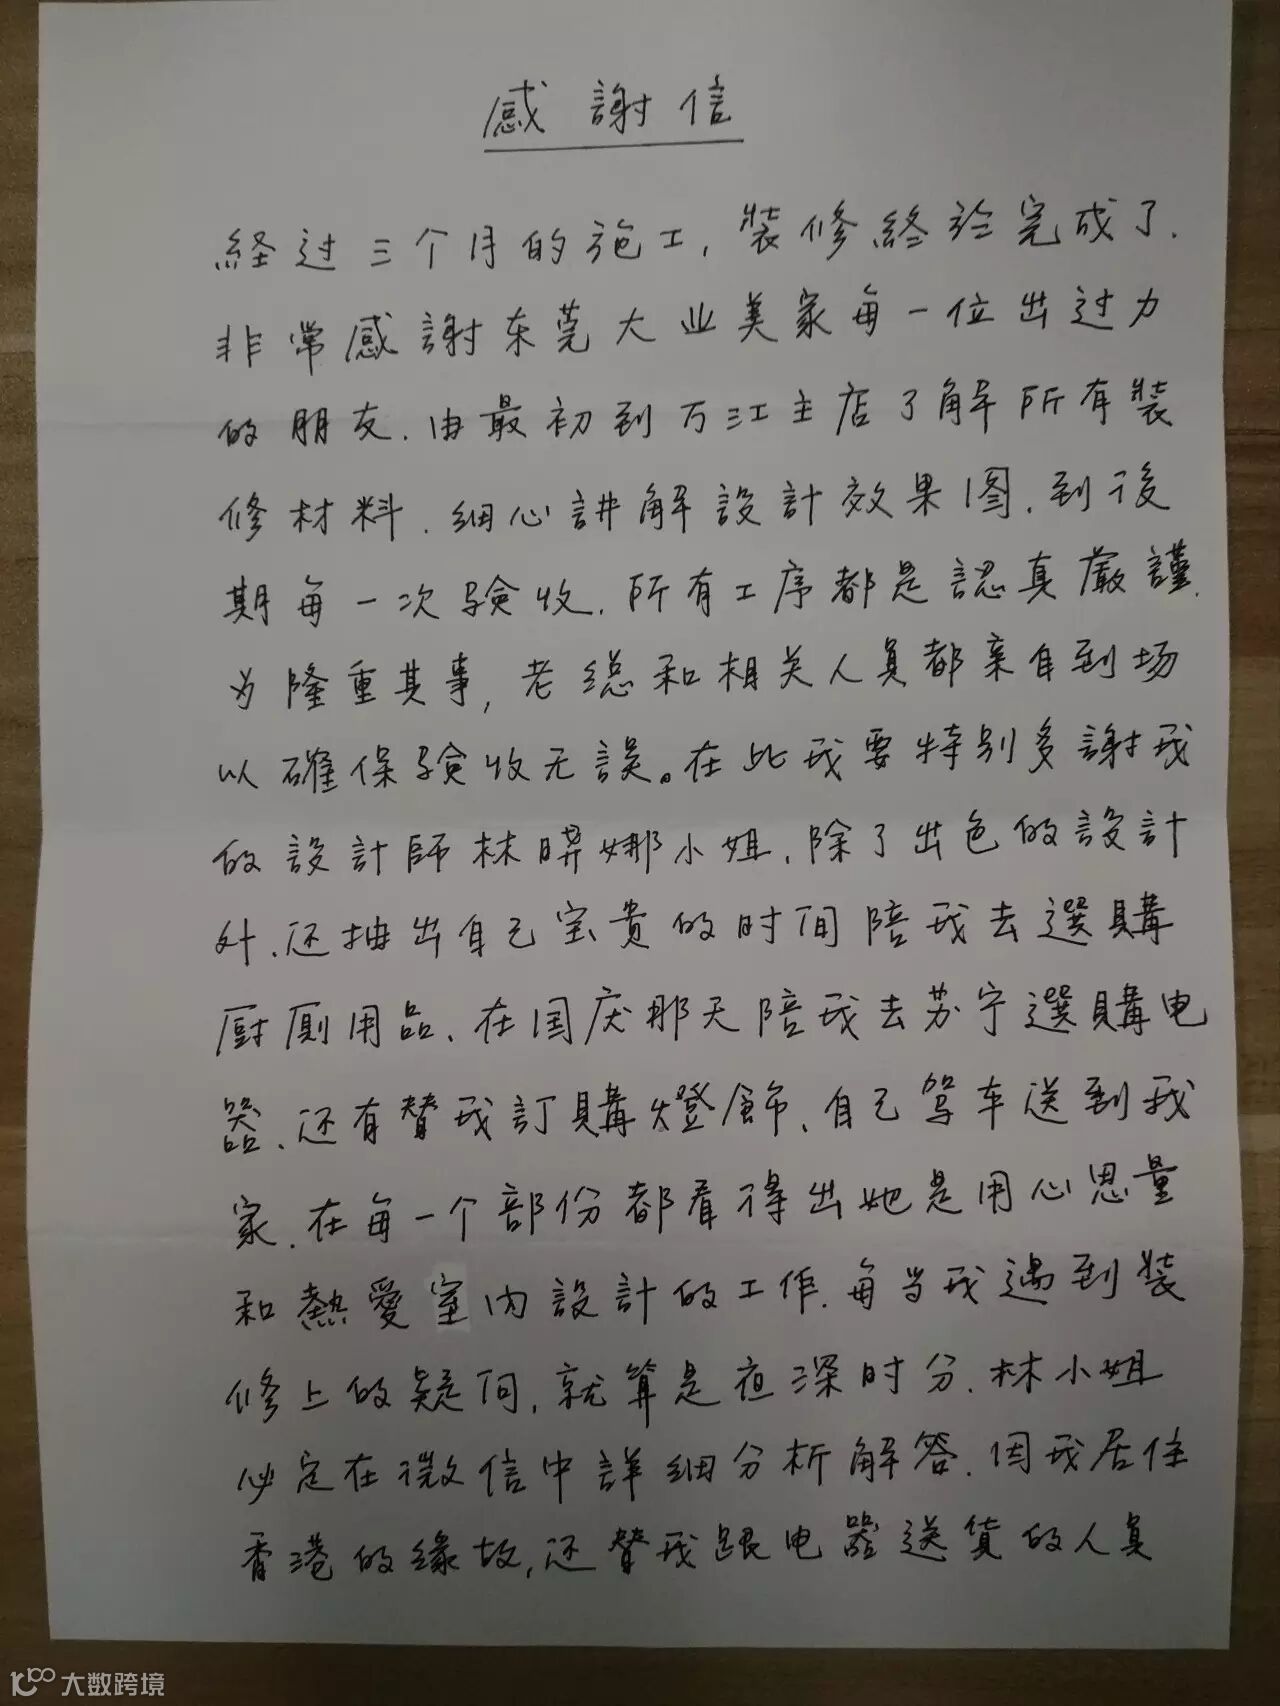 感謝信
経过三个月的施工,装修終於完成了.
非常感謝东莞大业美家每一位出过力
的朋友.由最初到万江主店了解所有裝
修材料.细心讲解設計效果图.到後
期每一次验收.所有工序都是認真嚴謹.
为隆重其事,老总和相关人員都亲自到场
以確保验收无誤。在此我要特别多謝我
的設計師林娉娜小姐.除了出色的設計
外.还抽出自己宝贵的时间陪我去選購
厨厠用品、在国庆那天陪我去苏宁選購电
器、还有替我訂購燈飾、自己驾车送到我
家.在每一个部份都看得出她是用心思量
和熱愛室内設計的工作.每当我遇到装
修上的疑问,就算是夜深时分.林小姐
必定在微信中詳细分析解答.因我居住
香港的缘故,还替我跟电器送货的人員
大数跨境